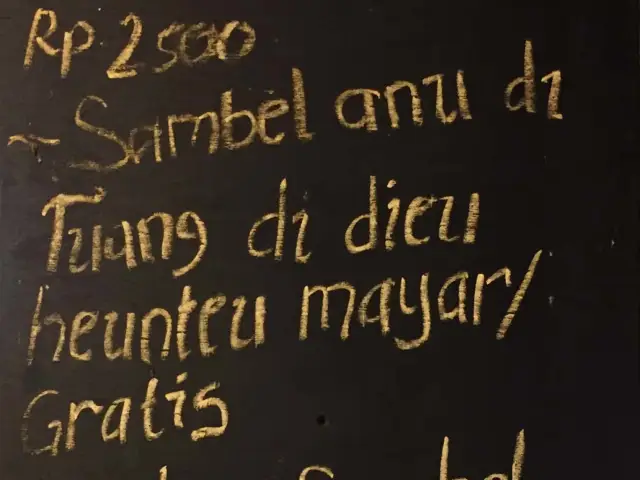 Rp. 2500
~ Sambel anu di
Tuang di dieu
heunteu mayar/
Gratis